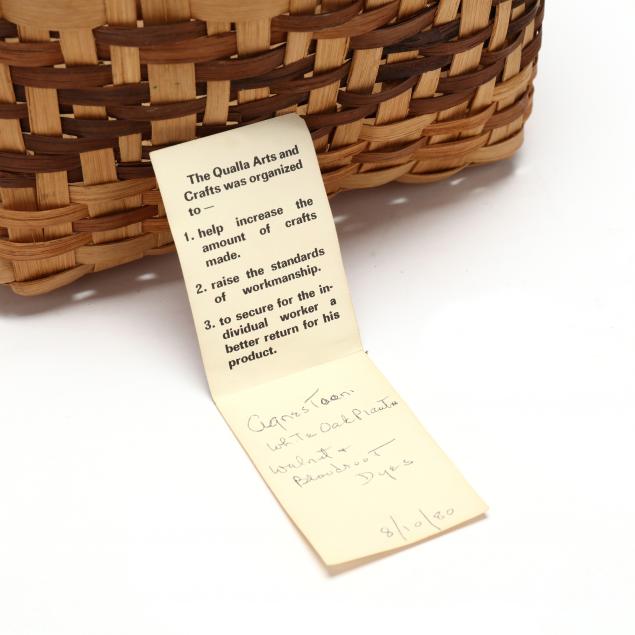 The Qualla Arts and
Crafts was organized
to —
1. help increase the
amount of crafts
made.
2. raise the standards
of workmanship.
3. to secure for the in-
dividual worker a
better return for his
product.
Agnes
White Oak
Walnut +
Bloodroot
Dyes
8/10/80